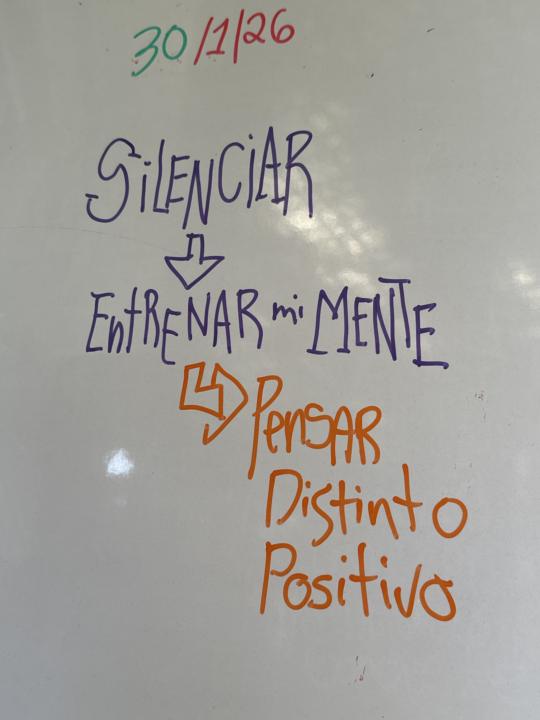 30/1/26
SiLENCiAR
EntRENAR mi MENTE
PenSAR
Distinto
Positivo